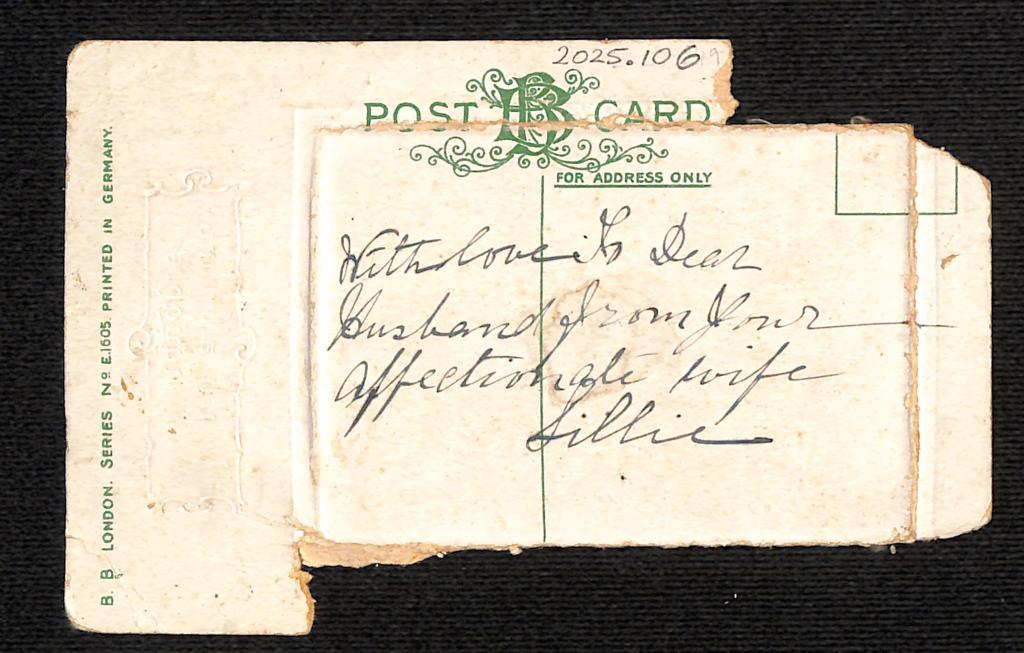 2025.106
POST BB CARD
FOR ADDRESS ONLY
With love To Dear
Husband From Your
affectionate wife
Lillie
B. B LONDON. SERIES Nº E.1605. PRINTED IN GERMANY.